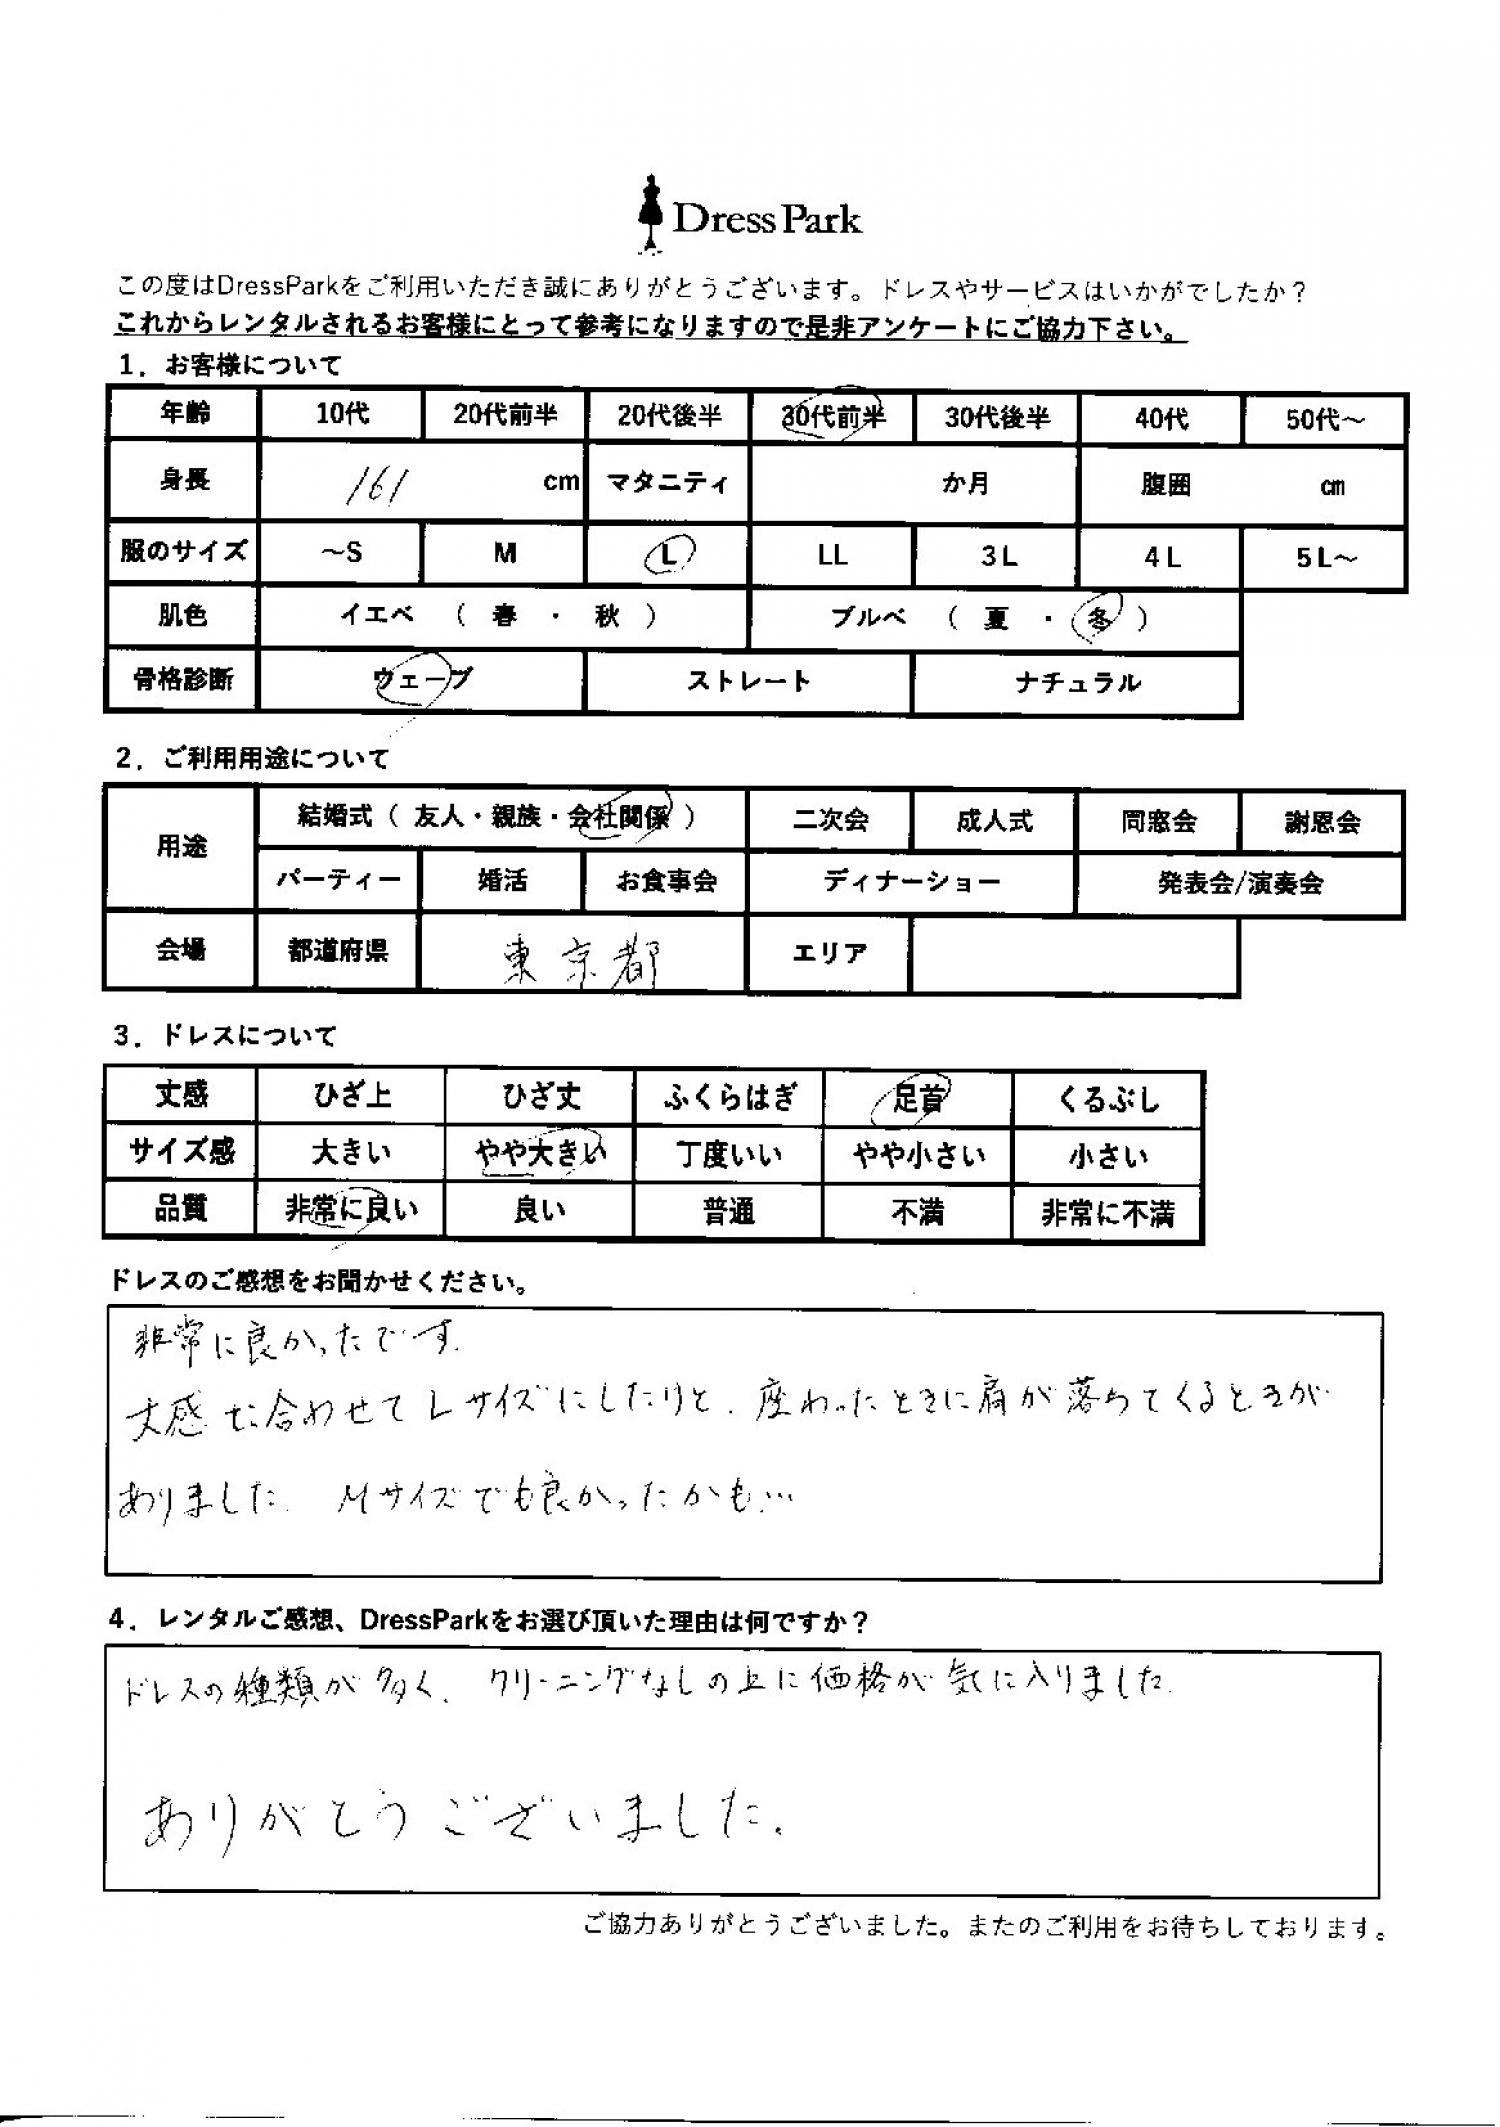 Dress Park
この度はDressParkをご利用いただき誠にありがとうございます。ドレスやサービスはいかがでしたか？
これからレンタルされるお客様にとって参考になりますので是非アンケートにご協力下さい。
1．お客様について
年齢 10代 20代前半 20代後半 30代前半 30代後半 40代 50代～
身長 161 cm マタニティ か月 腹囲 cm
服のサイズ ～S M L LL 3L 4L 5L～
肌色 イエベ （ 春 ・ 秋 ） ブルベ （ 夏 ・ 冬 ）
骨格診断 ウェーブ ストレート ナチュラル
2．ご利用用途について
用途 結婚式（ 友人・親族・会社関係 ） 二次会 成人式 同窓会 謝恩会
パーティー 婚活 お食事会 ディナーショー 発表会/演奏会
会場 都道府県 東京都 エリア
3．ドレスについて
丈感 ひざ上 ひざ丈 ふくらはぎ 足首 くるぶし
サイズ感 大きい やや大きい 丁度いい やや小さい 小さい
品質 非常に良い 良い 普通 不満 非常に不満
ドレスのご感想をお聞かせください。
非常に良かったです.
丈感に合わせてLサイズにしたりと、座わったときに肩が落ちてくるときが
ありました. Mサイズでも良かったかも…
4．レンタルご感想、DressParkをお選び頂いた理由は何ですか？
ドレスの種類が多く、クリーニングなしの上に価格が気に入りました.
ありがとうございました.
ご協力ありがとうございました。またのご利用をお待ちしております。